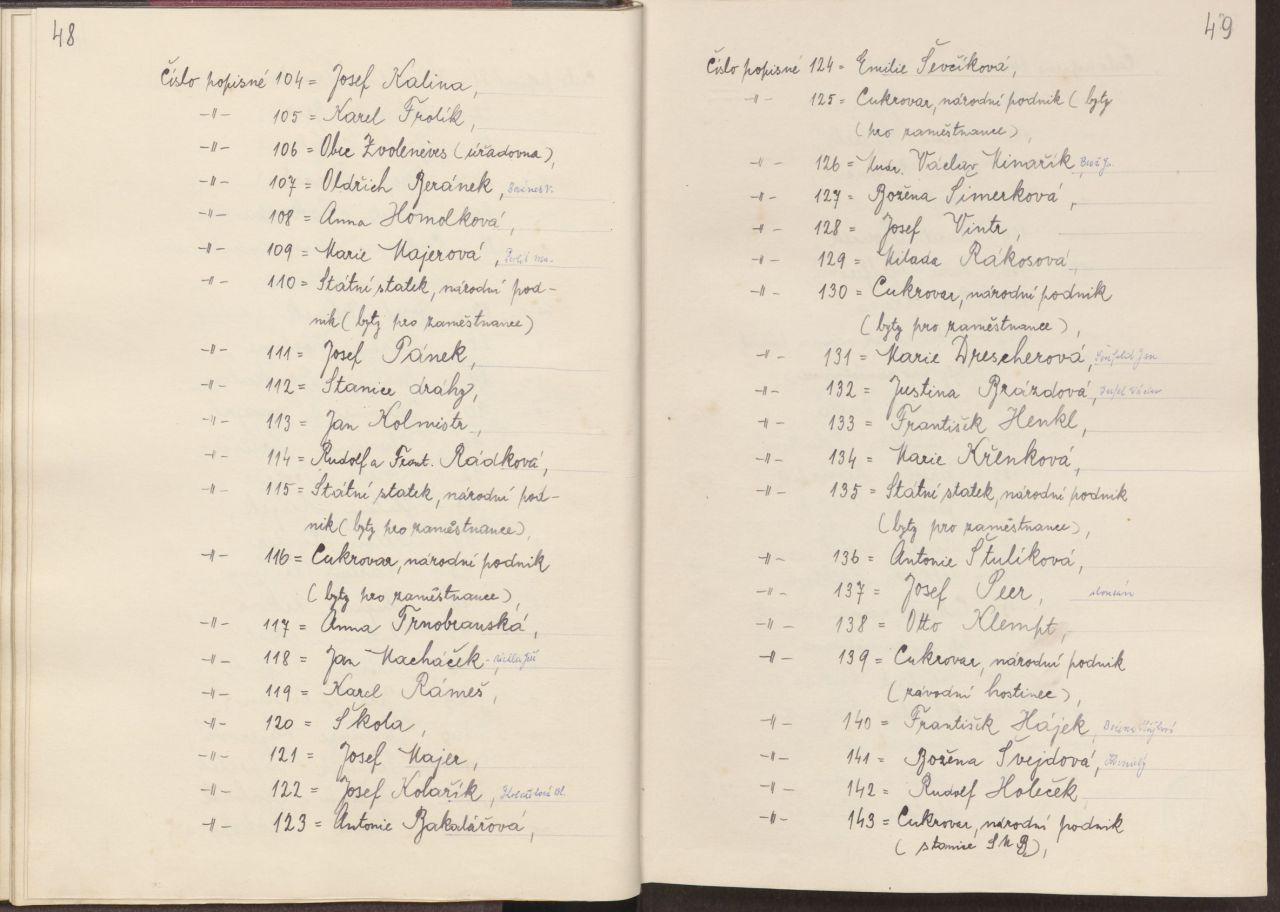 48
Číslo popisné 104 = Josef Kalina,
-"- 105 = Karel Frolík,
-"- 106 = Obec Zvoleněves (úřadovna),
-"- 107 = Oldřich Beránek,
-"- 108 = Anna Homolková,
-"- 109 = Marie Majerová,
-"- 110 = Státní statek, národní pod-
nik (byty pro zaměstnance)
-"- 111 = Josef Pánek,
-"- 112 = Stanice dráhy,
-"- 113 = Jan Kolmistr,
-"- 114 = Rudolf a Frant. Rádková,
-"- 115 = Státní statek, národní pod-
nik (byty pro zaměstnance),
-"- 116 = Cukrovar, národní podnik
(byty pro zaměstnance),
-"- 117 = Anna Trnobranská,
-"- 118 = Jan Macháček
-"- 119 = Karel Rámeš,
-"- 120 = Škola,
-"- 121 = Josef Majer,
-"- 122 = Josef Kolařík,
-"- 123 = Antonie Bakalářová,
49
Číslo popisné 124 = Emilie Ševčíková,
-"- 125 = Cukrovar, národní podnik (byty
(pro zaměstnance),
-"- 126 = Václav Minařík
-"- 127 = Božena Šimerková,
-"- 128 = Josef Vintr,
-"- 129 = Milada Rákosová,
-"- 130 = Cukrovar, národní podnik
(byty pro zaměstnance),
-"- 131 = Marie Drescherová,
-"- 132 = Justina Brázdová,
-"- 133 = František Henkl,
-"- 134 = Marie Křenková,
-"- 135 = Státní statek, národní podnik
(byty pro zaměstnance),
-"- 136 = Antonie Štulíková,
-"- 137 = Josef Peer,
-"- 138 = Otto Klempt,
-"- 139 = Cukrovar, národní podnik
(závodní hostinec),
-"- 140 = František Hájek,
-"- 141 = Božena Švejdová,
-"- 142 = Rudolf Holeček,
-"- 143 = Cukrovar, národní podnik
(stanice SNB),